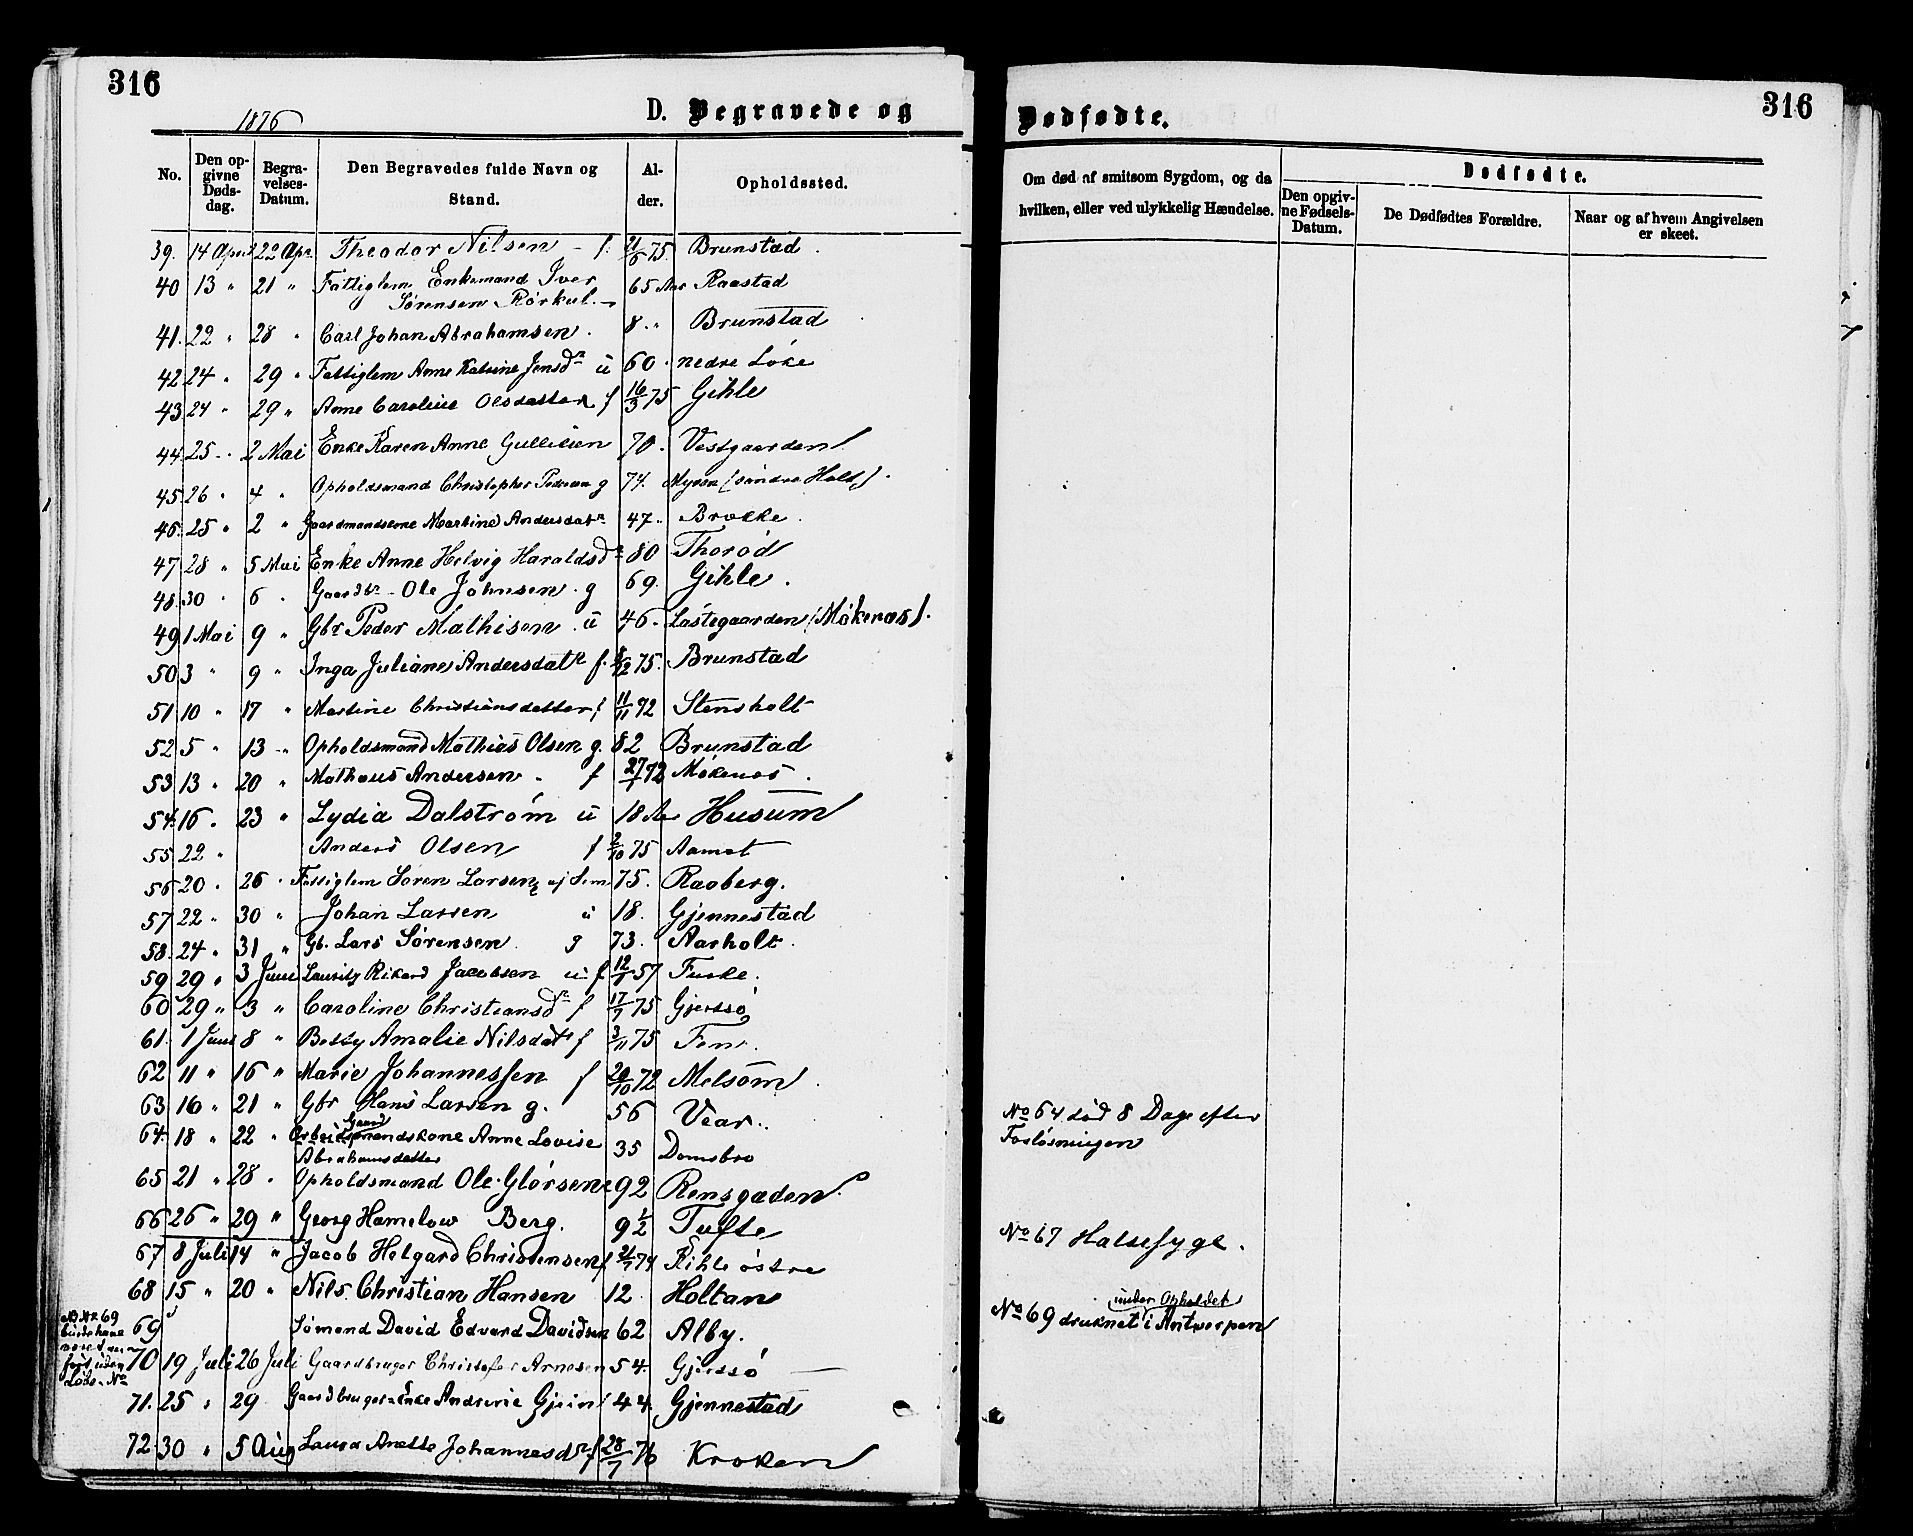 316
1876
D. Begravede og
No.
Den opgivne Dødsdag.
Begravelses-Datum.
Den Begravedes fulde Navn og Stand.
Alder.
Opholdssted.
39. 14 April 22 Apr. Theodor Nilsen - f. 21/6 75. Brunstad.
40 13 " 21 " Fattiglem Enkemand Iver
Sørensen Rørkul. 65 Aar Raastad
41. 22 " 28 " Carl Johan Abrahamsen. 8. " Brunstad
42 24 " 29 " Fattiglem Anne Katrine Jensdr u 60. nedre Løke
43 24 " 29 " Anne Caroline Olsdatter f 16/3 75 Gihle
44 25 " 2 Mai Enke Karen Anne Gulliksen 70. Vestgaarden
45 26 " 4 " Opholdsmand Christopher Pedersen g 74. Myren (søndre Holt).
46. 25 " 2 " Gaardmandskone Martine Andersdatr 47. " Brekke.
47 28 " 5 Mai Enke Anne Helvig Haraldsdr 80 Thorød
48. 30 " 6 " Gaardbr. Ole Johnsen. g 69. Gihle.
49 1 Mai 9 " Gbr Peder Mathisen u 46. Løstegaarden (Møkenæs).
50 3 " 9 " Inga Juliane Andersdatr f. /12 75. Brunstad
51 10 " 17 " Martine Christiansdatter f 11/11 72 Stensholt
52 5 " 13 " Opholdsmand Mathias Olsen g. 82 Brunstad
53. 13 " 20 " Mathæus Andersen. f 27/1 72 Møkenæs.
54. 16. 23 " Lydia Dalstrøm u 18 Aar Husum
55 22 " Anders Olsen f 2/10 75 Aamot
56 20 " 26 " Fattiglem Søren Larsen, af Sem 75. Raaberg.
57 22 " 30 " Johan Larsen u 18. Gjennestad
58. 24 " 31 " Gb. Lars Sørensen g 73. Aarholt.
59 29 " 3 Juni Lauritz Rikard Jacobsen u: f 12/ 57 Furke.
60 29 " 3 " Caroline Christiansdr f 17/7 75 Gjerssø
61. 1 Juni 8 " Betsy Amalie Nilsdatr f 3/11 75 Fen.
62 11 " 16 " Marie Johannessen f 20/10 72 Melsom.
63 16 " 21 " Gbr Hans Larsen g. 56 Vear.
64. 18 " 22 " Arbeidsmandskone Anne Lovise
Gaard
Abrahamsdatter 35 Damsbro
65 21 " 28 " Opholdsmand Ole Glørsen 92 Rensgaden.
66 26 " 29 " Georg Hamelow Berg. 9 1/2 Tufte
67 8 Juli 14 " Jacob Helgard Christensen f 21/7 74 Kihle østre
68 15 " 20 " Nils Christian Hansen 12 Holtan
69 Sømand David Edvard Davidsen 62 Alby.
NB No 69
burde have
været
ført uden
Løbe-No
70 19 Juli 26 Juli Gaardbruger Christofer Arnesen 54. Gjerssø
71. 25 " 29 Gaardbruger-Enke Andrine Gjein 44. Gjennestad
72 30 " 5 Aug Laura Anette Johannesdr. f 28/7 76 Kroken
316
Dødfødte.
Om død af smitsom Sygdom, og da
hvilken, eller ved ulykkelig Hændelse.
Dødfødte.
Den opgivne Fødsels-Datum.
De Dødfødtes Forældre.
Naar og af hvem Angivelsen er skeet.
No 64 død 8 Dage efter
Forløsningen
No 67 Halssyge.
under Opholdet
No 69 druknet i Antwerpen